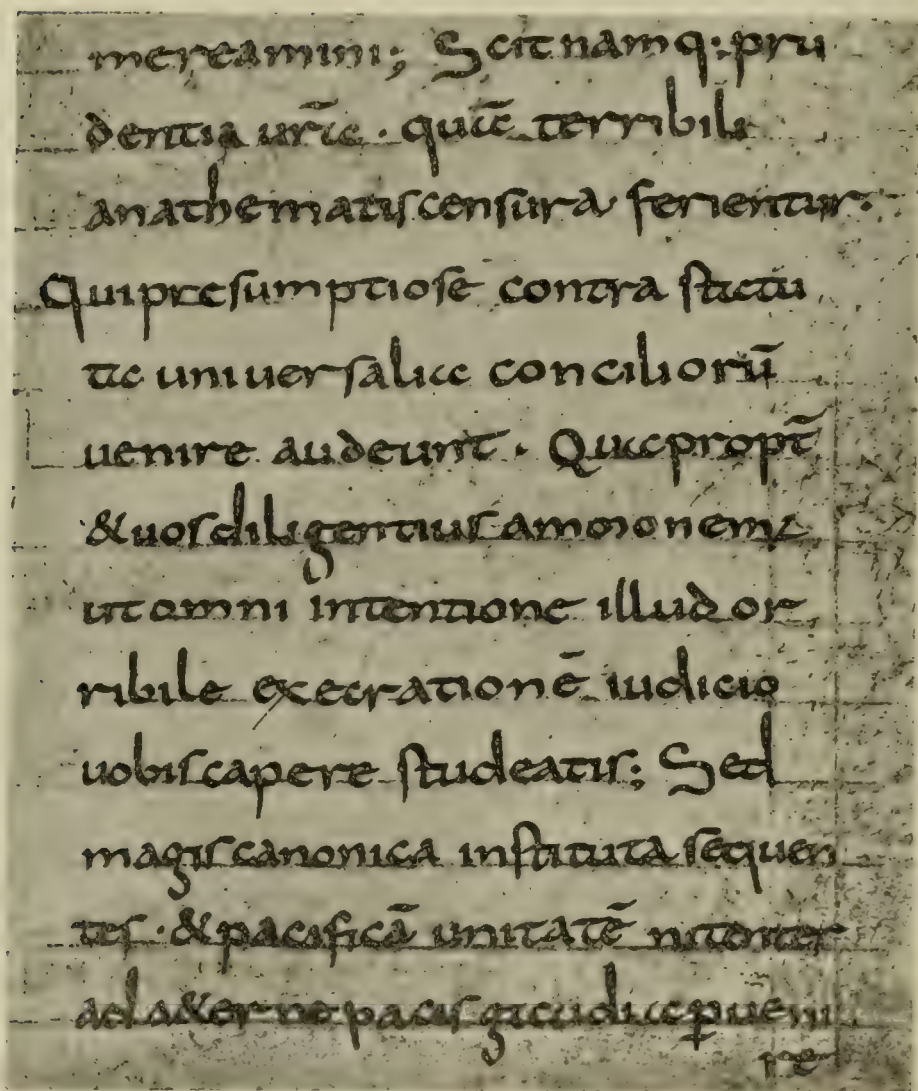 mereamini; Scit namq; pru
dentia urā · quā terribili
anathematis censura ferientur·
Qui presumptiose contra statu
ta uniuersaliā conciliorū
uenire audeunt · Qua propt̄
& uos diligentius ammonem;
ut omni intentione illud or
ribile execrationē iudicio
uobis capere studeatis; Sed
magis canonica instituta sequen
tes · & pacificā unitatē nitenter
ad a&erne pacis gaudia ꝑueni
re